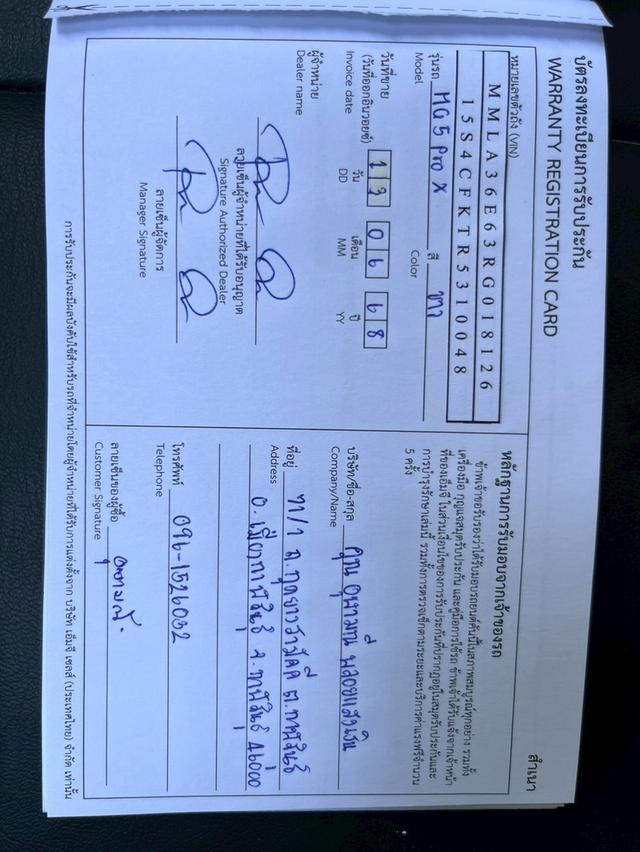 บัตรลงทะเบียนการรับประกัน
WARRANTY REGISTRATION CARD
สำเนา
หมายเลขตัวถัง (VIN)
MMLA36E63RG018126
15S4CFKTR5310048
รุ่นรถ MG5 Pro X สี เทา
Model Color
วันที่ขาย 13 06 68
(วันที่ออกอินวอยซ์) วัน เดือน ปี
Invoice date DD MM YY
ผู้จำหน่าย
Dealer name
ลายเซ็นผู้จำหน่ายที่ได้รับอนุญาต
Signature Authorized Dealer
ลายเซ็นผู้จัดการ
Manager Signature
หลักฐานการรับมอบจากเจ้าของรถ
ข้าพเจ้าขอรับรองว่าได้รับมอบรถยนต์คันนี้ในสภาพสมบูรณ์ทุกอย่าง รวมทั้ง
เครื่องมือ กุญแจสมุดรับประกัน และคู่มือการใช้รถ ข้าพเจ้าได้รับแจ้งจากเจ้าหน้า
ที่ของเอ็มจี ในส่วนเงื่อนไขของการรับประกันที่ปรากฏอยู่ในสมุดรับประกันและ
การบำรุงรักษาเล่มนี้ รวมทั้งการตรวจเช็กตามระยะและบริการค่าแรงฟรีจำนวน
5 ครั้ง
บริษัท/ชื่อ-สกุล คุณ
Company/Name
ที่อยู่ ต.กาฬสินธุ์
Address อ.เมืองกาฬสินธุ์ จ.กาฬสินธุ์ 46000
โทรศัพท์ 096-1526032
Telephone
ลายเซ็นของผู้ซื้อ
Customer Signature
การรับประกันจะมีผลบังคับใช้สำหรับรถที่จำหน่ายโดยผู้จำหน่ายที่ได้รับการแต่งตั้งจาก บริษัท เอ็มจี เซลส์ (ประเทศไทย) จำกัด เท่านั้น